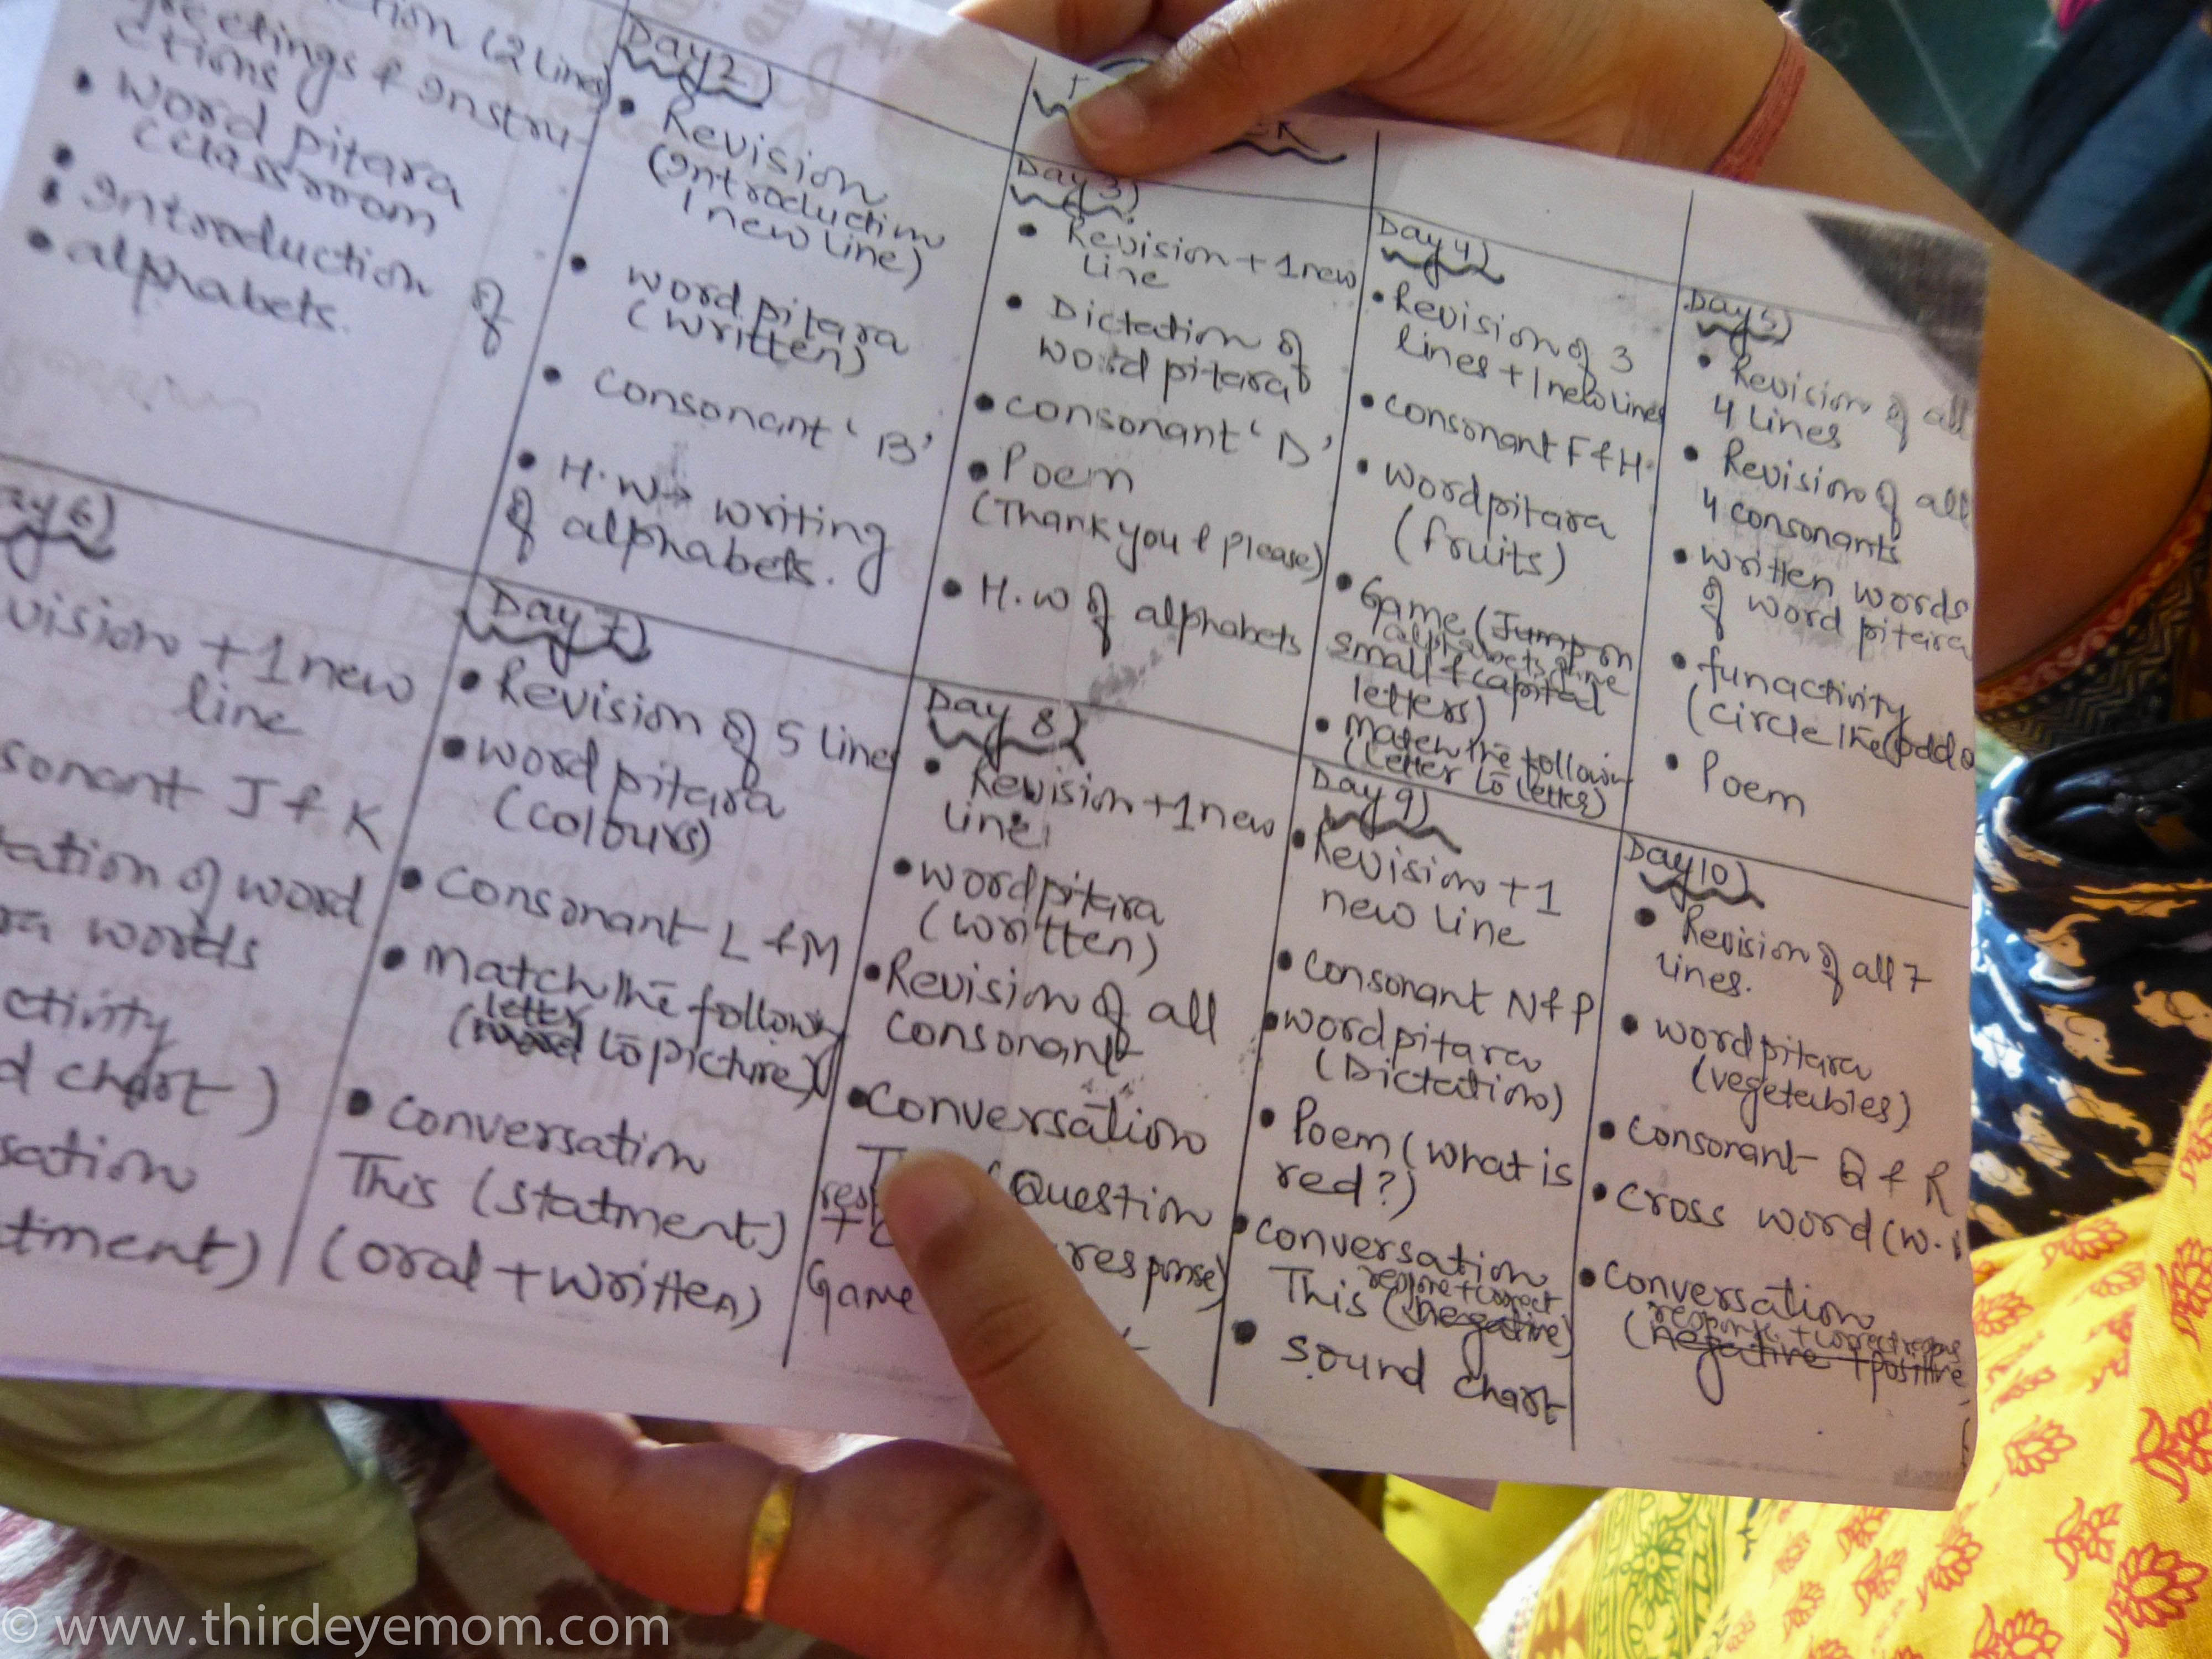 (2 lines)
greetings & Instru-
ctions
• word pitara
(classroom
• Introduction of
• alphabets.
Day 2)
• Revision
(Introduction
1 new line)
• word pitara
(written)
• consonant 'B'
• H.W → writing
of alphabets.
Day 3)
• Revision + 1 new
line
• Dictation of
word pitara
• consonant 'D'
• Poem
(Thank you & please)
• H.W of alphabets
Day 4)
• Revision of 3
lines + 1 new lines
• consonant F & H.
• wordpitara
(fruits)
• Game (Jump on
alphabets
small & capital
letters)
• Match the following
(letter to letter)
Day 5)
• Revision of all
4 lines
• Revision of all
4 consonants
• written words
of word pitara
• funactivity
(circle the odd
• Poem
ay 6)
vision + 1 new
line
sonant J & K
tation of word
ra words
ctivity
d chart)
sation
tment)
Day 7)
• Revision of 5 lines
• word pitara
(colours)
• Consonant L & M
• Match the following
letter
( to picture)
• conversation
This (statment)
(oral + written)
Day 8)
• Revision + 1 new
line
• wordpitara
(written)
• Revision of all
consonant
• Conversation
(Question
response)
Game
Day 9)
• Revision + 1
new line
• consonant N & P
• wordpitara
(Dictation)
• Poem (what is
red?)
• conversation
respone + correct
This (negative)
• sound chart
Day 10)
• Revision of all 7
lines.
• wordpitara
(vegetables)
• consonant Q & R
• cross word (w.
• conversation
response + correct respons
(negative + positive
© www.thirdeyemom.com